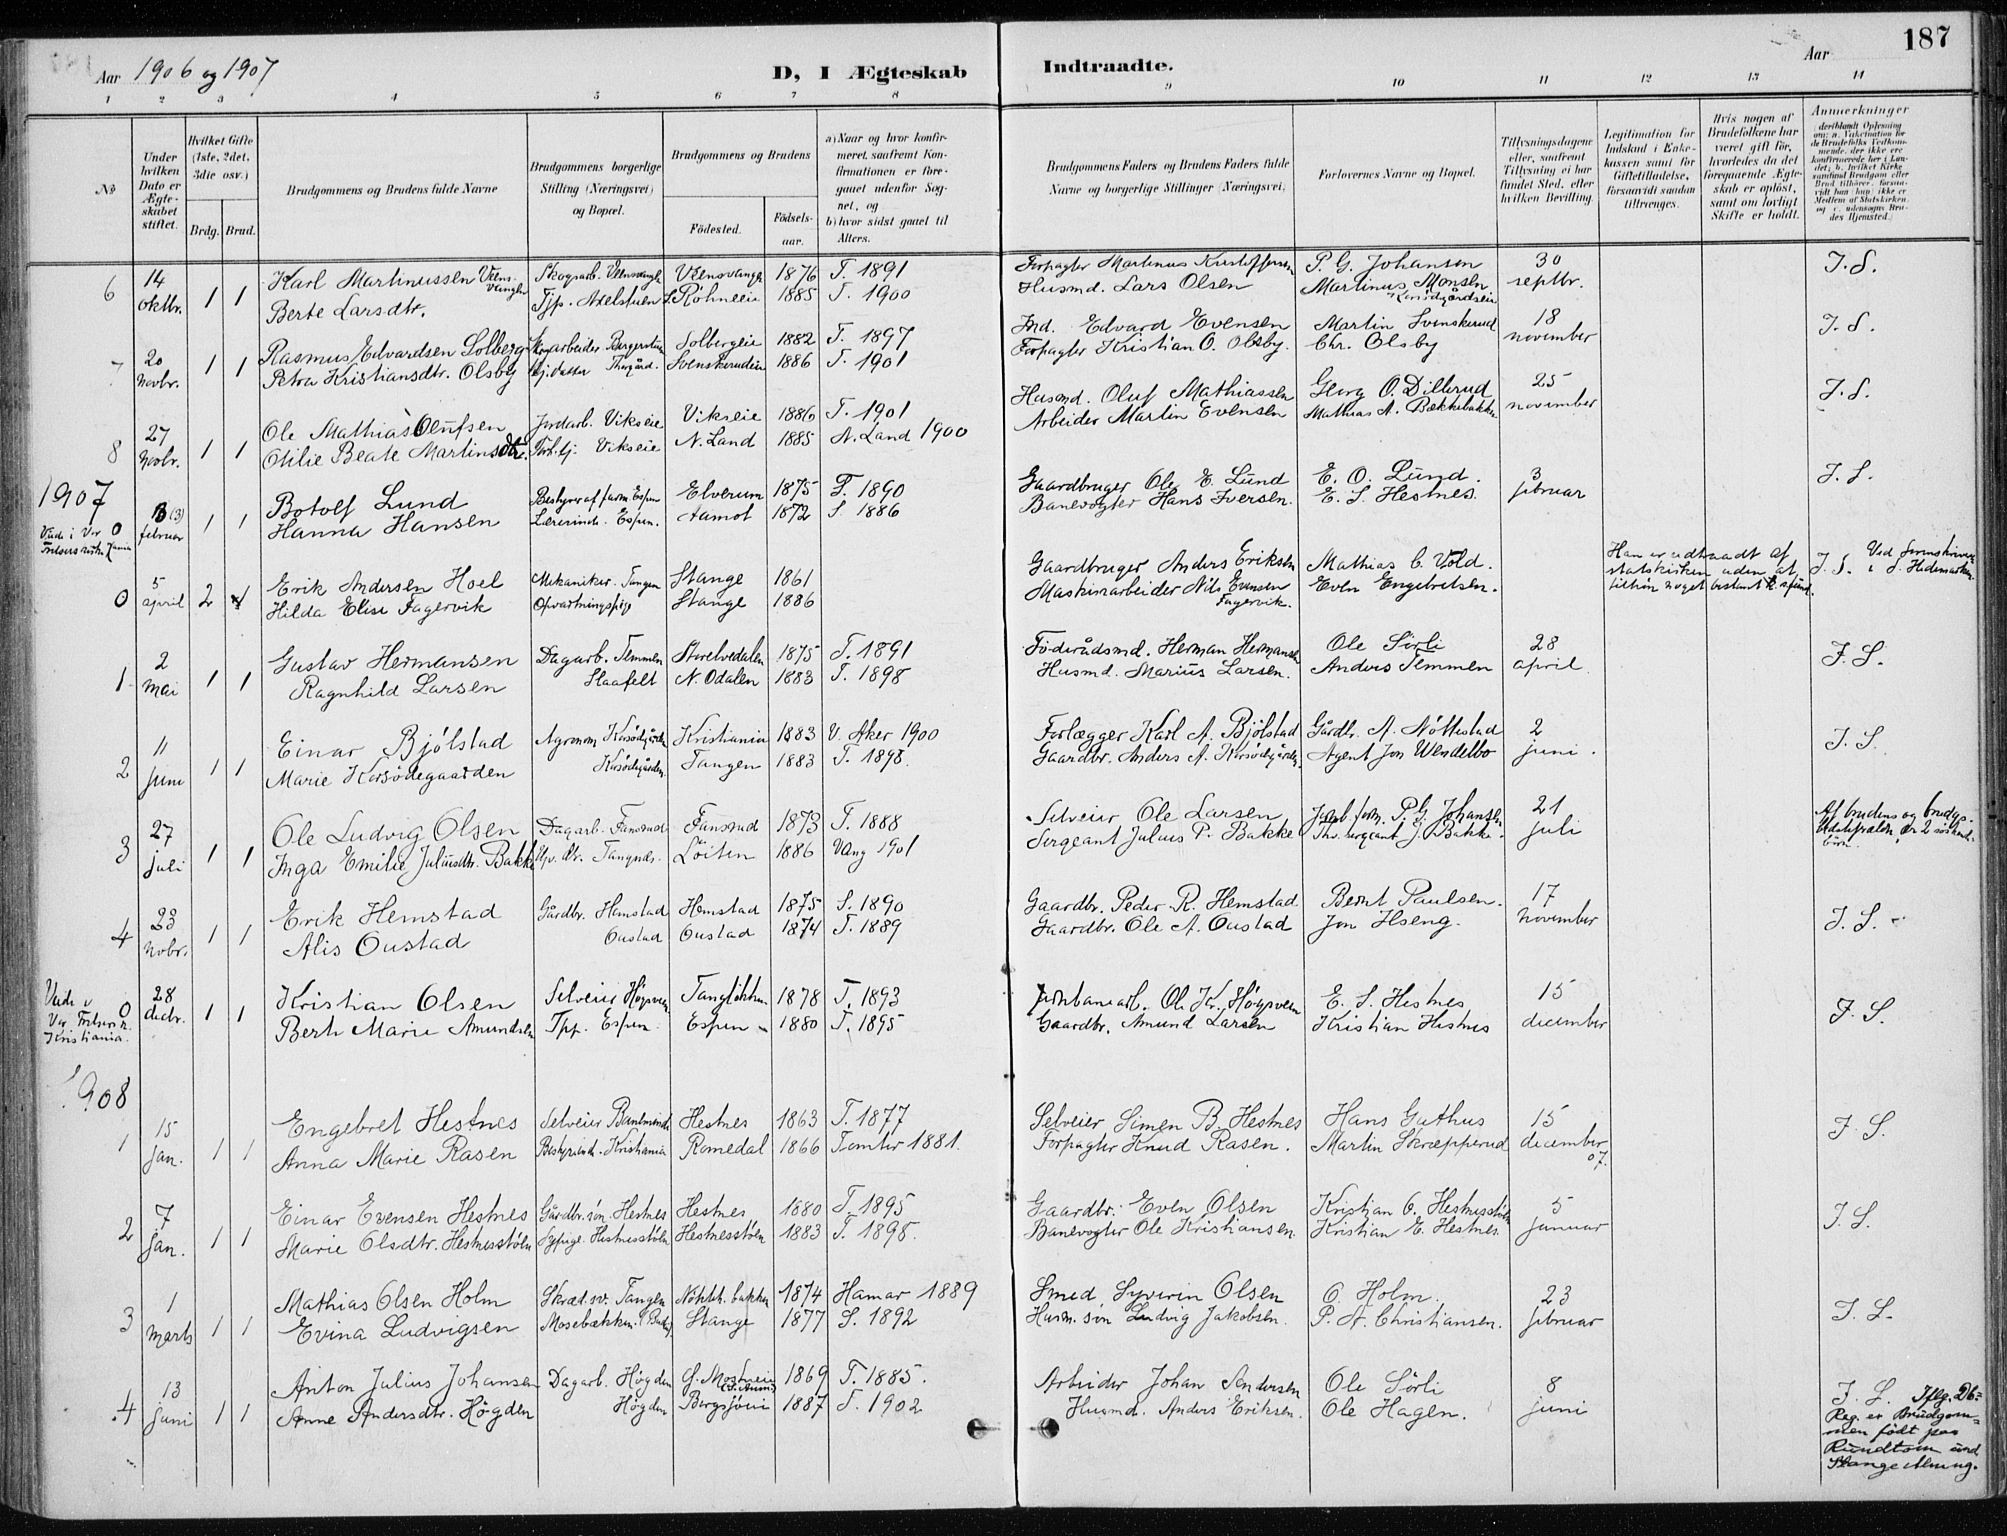 187
Aar 1906 og 1907
D, I Ægteskab Indtraadte.
Aar
1 2 3 4 5 6 7 8 9 10 11 12 13 14
No
Under hvilken Dato er Ægteskabet stiftet.
Hvilket Gifte (1ste, 2det, 3die osv.)
Brdg. Brud.
Brudgommens og Brudens fulde Navne
Brudgommens borgerlige Stilling (Næringsvei) og Bopæl.
Brudgommens og Brudens
Fødested.
Fødselsaar.
a) Naar og hvor konfirmeret, saafremt Konfirmationen er foregaaet udenfor Sognet, og
b) hvor sidst gaaet til Alters.
Brudgommens Faders og Brudens Faders fulde Navne og borgerlige Stillinger (Næringsvei).
Forlovernes Navne og Bopæl.
Tillysningsdagene eller, saafremt Tillysning ei har fundet Sted, efter hvilken Bevilling.
Legitimation for Indskud i Enkekassen samt for Giftetilladelse, forsaavidt saadan tiltrænges.
Hvis nogen af Brudefolkene har været gift før, hvorledes da det foregaaende Ægteskab er opløst, samt om lovligt Skifte er holdt.
Anmerkninger
6 14 oktbr. 1 1 Karl Martinussen Skogsarb. 1876 T. 1891 Forpagter Martinus Kristoffersen P. G. Johansen 30 septbr. I. S.
Berte Larsdtr. Tjp. 1885 T. 1900 Husmd. Lars Olsen Martinus Monsen
7 20 novbr. 1 1 Rasmus Edvardsen Solberg Solbergeie 1882 T. 1897 Ind. Edvard Evensen Martin Svenskerud 18 november I. S.
Petra Kristiansdtr. Olsby Svenskerudeie 1886 T. 1901 Forpagter Kristian O. Olsby. Chr. Olsby
8 27 novbr. 1 1 Ole Mathias Olufsen Jordarb. Vikseie Vikseie 1886 T. 1901 Husmd. Oluf Mathiassen Georg O. Dillerud 25 november I. S.
Otilie Beate Martinsdtr. Vikseie N. Land 1885 N. Land 1900 Arbeider Martin Evensen Mathias A. Bækkebakken
1907
0 (3) februar 1 1 Botolf Lund Bestyrer af farm Espen Elverum 1875 T. 1890 Gaardbruger Ole E. Lund E. O. Lund. 3 februar I. S.
Hanna Hansen Lærerinde. Espen. Aamot 1872 S 1886 Banevogter Hans Iversen. E. S. Hestnes.
0 5 april 2 1 Erik Andersen Hoel Mekaniker. Tangen Stange 1861 Gaardbruger Anders Eriksen Mathias C. Vold. Han er udtraadt af statskirken uden at tilhøre noget bestemt I. S. Ved Sorenskriveren i S. Hedemarken.
Hilda Elise Fagervik Opvartningspige Stange 1886 Maskinarbeider Nils Evensen Fagervik. Even Engebretsen.
1 2 mai 1 1 Gustav Hermansen Dagarb. Temmen Storelvedalen 1875 T. 1891 Føderådsmd. Herman Hermansen Ole Sørli 28 april I. S.
Ragnhild Larsen Slaafelt N. Odalen 1883 T. 1898 Husmd. Marius Larsen. Anders Temmen
2 11 juni 1 1 Einar Bjølstad Agronom Korsødegården Kristiania 1883 V. Aker 1900 Forlægger Karl A. Bjølstad Gårdbr. A. Nøttestad 2 juni. I. S.
Marie Korsødegaarden Korsødegården Tangen 1883 T. 1898. Gaardbr. Anders A. Korsødegården. Agent Jon Wendelbo
3 27 juli 1 1 Ole Ludvig Olsen Dagarb. Fansrud Fansrud 1873 T. 1888 Selveier Ole Larsen P. G. Johansen 21 juli
Inga Emilie Juliusdtr. Bakke Tangnæs. Löiten 1886 Vang 1901 Sergeant Julius P. Bakke sergeant J. Bakke.
4 23 novbr. 1 1 Erik Hemstad Gårdbr. Hemstad Hemstad 1875 S. 1890 Gaardbr. Peder R. Hemstad Bernt Paulsen. 17 november I. S.
Alis Oustad Oustad Oustad 1874 T. 1889 Gaardbr. Ole A. Oustad Jon Ilseng.
0 28 decbr. 1 1 Kristian Olsen Selveier Høgsveen 1878 T. 1893 Jernbanearb. Ole Kr. Høgsveen E. S. Hestnes 15 december I. S.
Kristiania. Berth Marie Amundsen Tpp. Espen. Espen 1880 T. 1895 Gaardbr. Amund Larsen Kristian Hestnes
1908
1 15 jan. 1 1 Engebret Hestnes Selveier Hestnes 1863 T. 1877 Selveier Simen B. Hestnes Hans Guthus 15 december 07. I. S.
Anna Marie Rasen Bestyrinde. Kristiania Romedal 1866 Tomter 1881. Forpagter Knud Rasen. Martin Skrapperud
2 7 jan. 1 1 Einar Evensen Hestnes Gårdbr.søn. Hestnes Hestnes 1880 T. 1895 Gaardbr. Even Olsen Kristian O. Hestnesstølen 5 januar I. S.
Marie Olsdtr. Hestnesstølen Sypige. Hestnesstølen Hestnesstølen 1883 T. 1898. Banevogter Ole Kristiansen. Kristian E. Hestnes.
3 1 marts 1 1 Mathias Olsen Holm Skræd.sv. Tangen 1874 Hamar 1889 Smed Syverin Olsen O. Holm. 23 februar I. S.
Evina Ludvigsen Mosebækken. Stange 1877 S. 1892 Husm. søn Ludvig Jakobsen. P. A. Christiansen.
4 13 juni 1 1 Anton Julius Johansen Dagarb. Høgden 1869 T. 1885. Arbeider Johan Andersen Ole Sørli 8 juni I. S. Iflg. Db=Reg. er Brudgommen født paa Rundtom und. Stange Alming.
Anne Andersdtr. Høgden Høgden 1887 T. 1902 Husmd. Anders Eriksen. Ole Hagen.